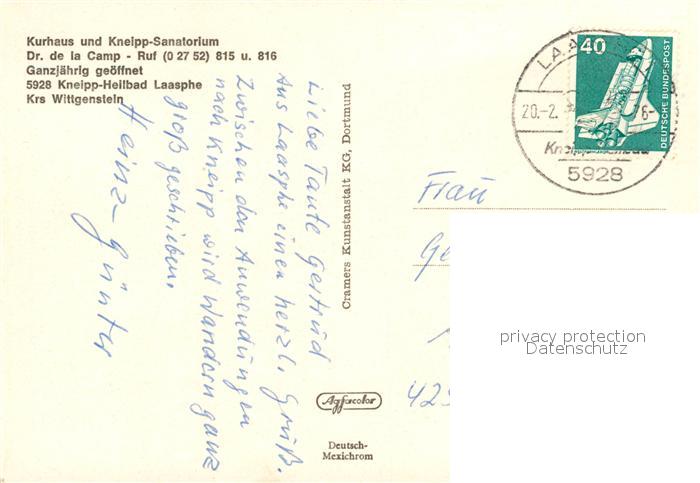 Kurhaus und Kneipp-Sanatorium
Dr. de la Camp - Ruf (0 27 52) 815 u. 816
Ganzjährig geöffnet
5928 Kneipp-Heilbad Laasphe
Krs Wittgenstein
Liebe Tante Gertrud
Aus Laasphe einen herzl. Gruß.
Zwischen den Anwendungen
nach Kneipp wird Wandern ganz
groß geschrieben.
Heinz-Günter
Cramers Kunstanstalt KG, Dortmund
Agfacolor
Deutsch-
Mexichrom
40
DEUTSCHE BUNDESPOST
20.-2.
76-
5928
Frau
Ge
425
privacy protection
Datenschutz